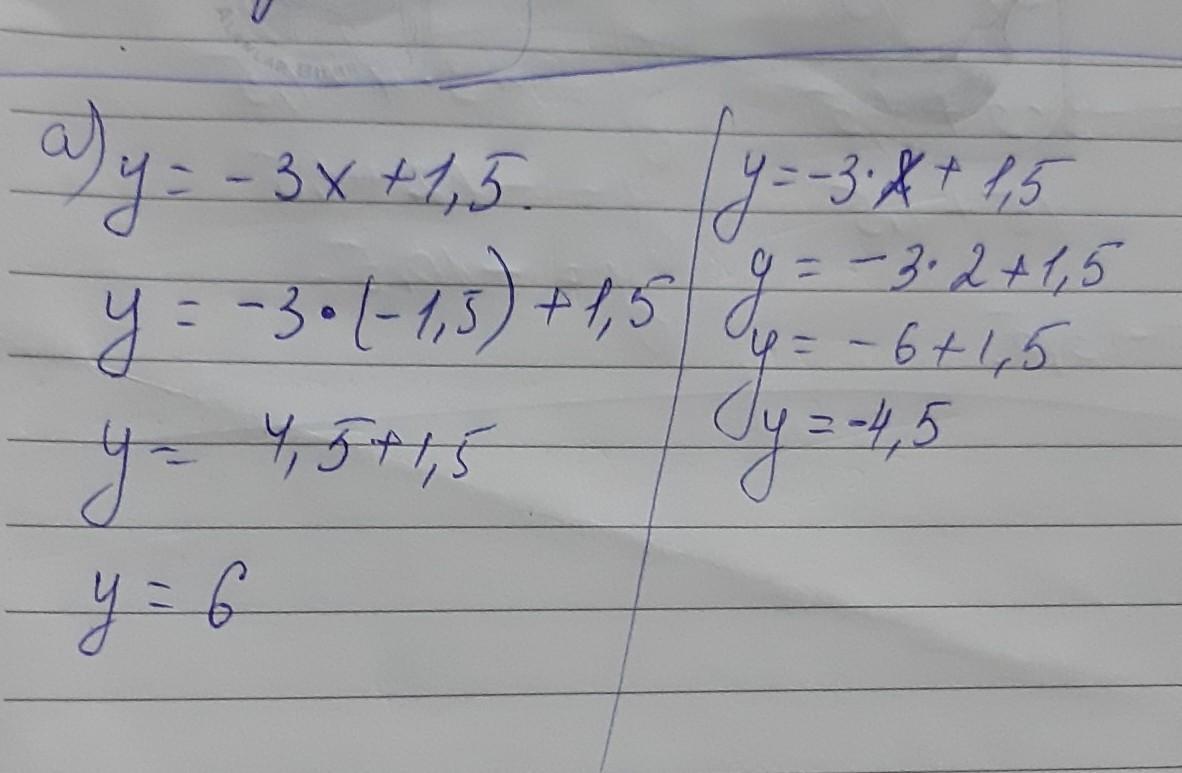 а) y = -3x + 1,5.
y = -3 · (-1,5) + 1,5
y = 4,5 + 1,5
y = 6
y = -3 · x + 1,5
y = -3 · 2 + 1,5
y = -6 + 1,5
y = -4,5